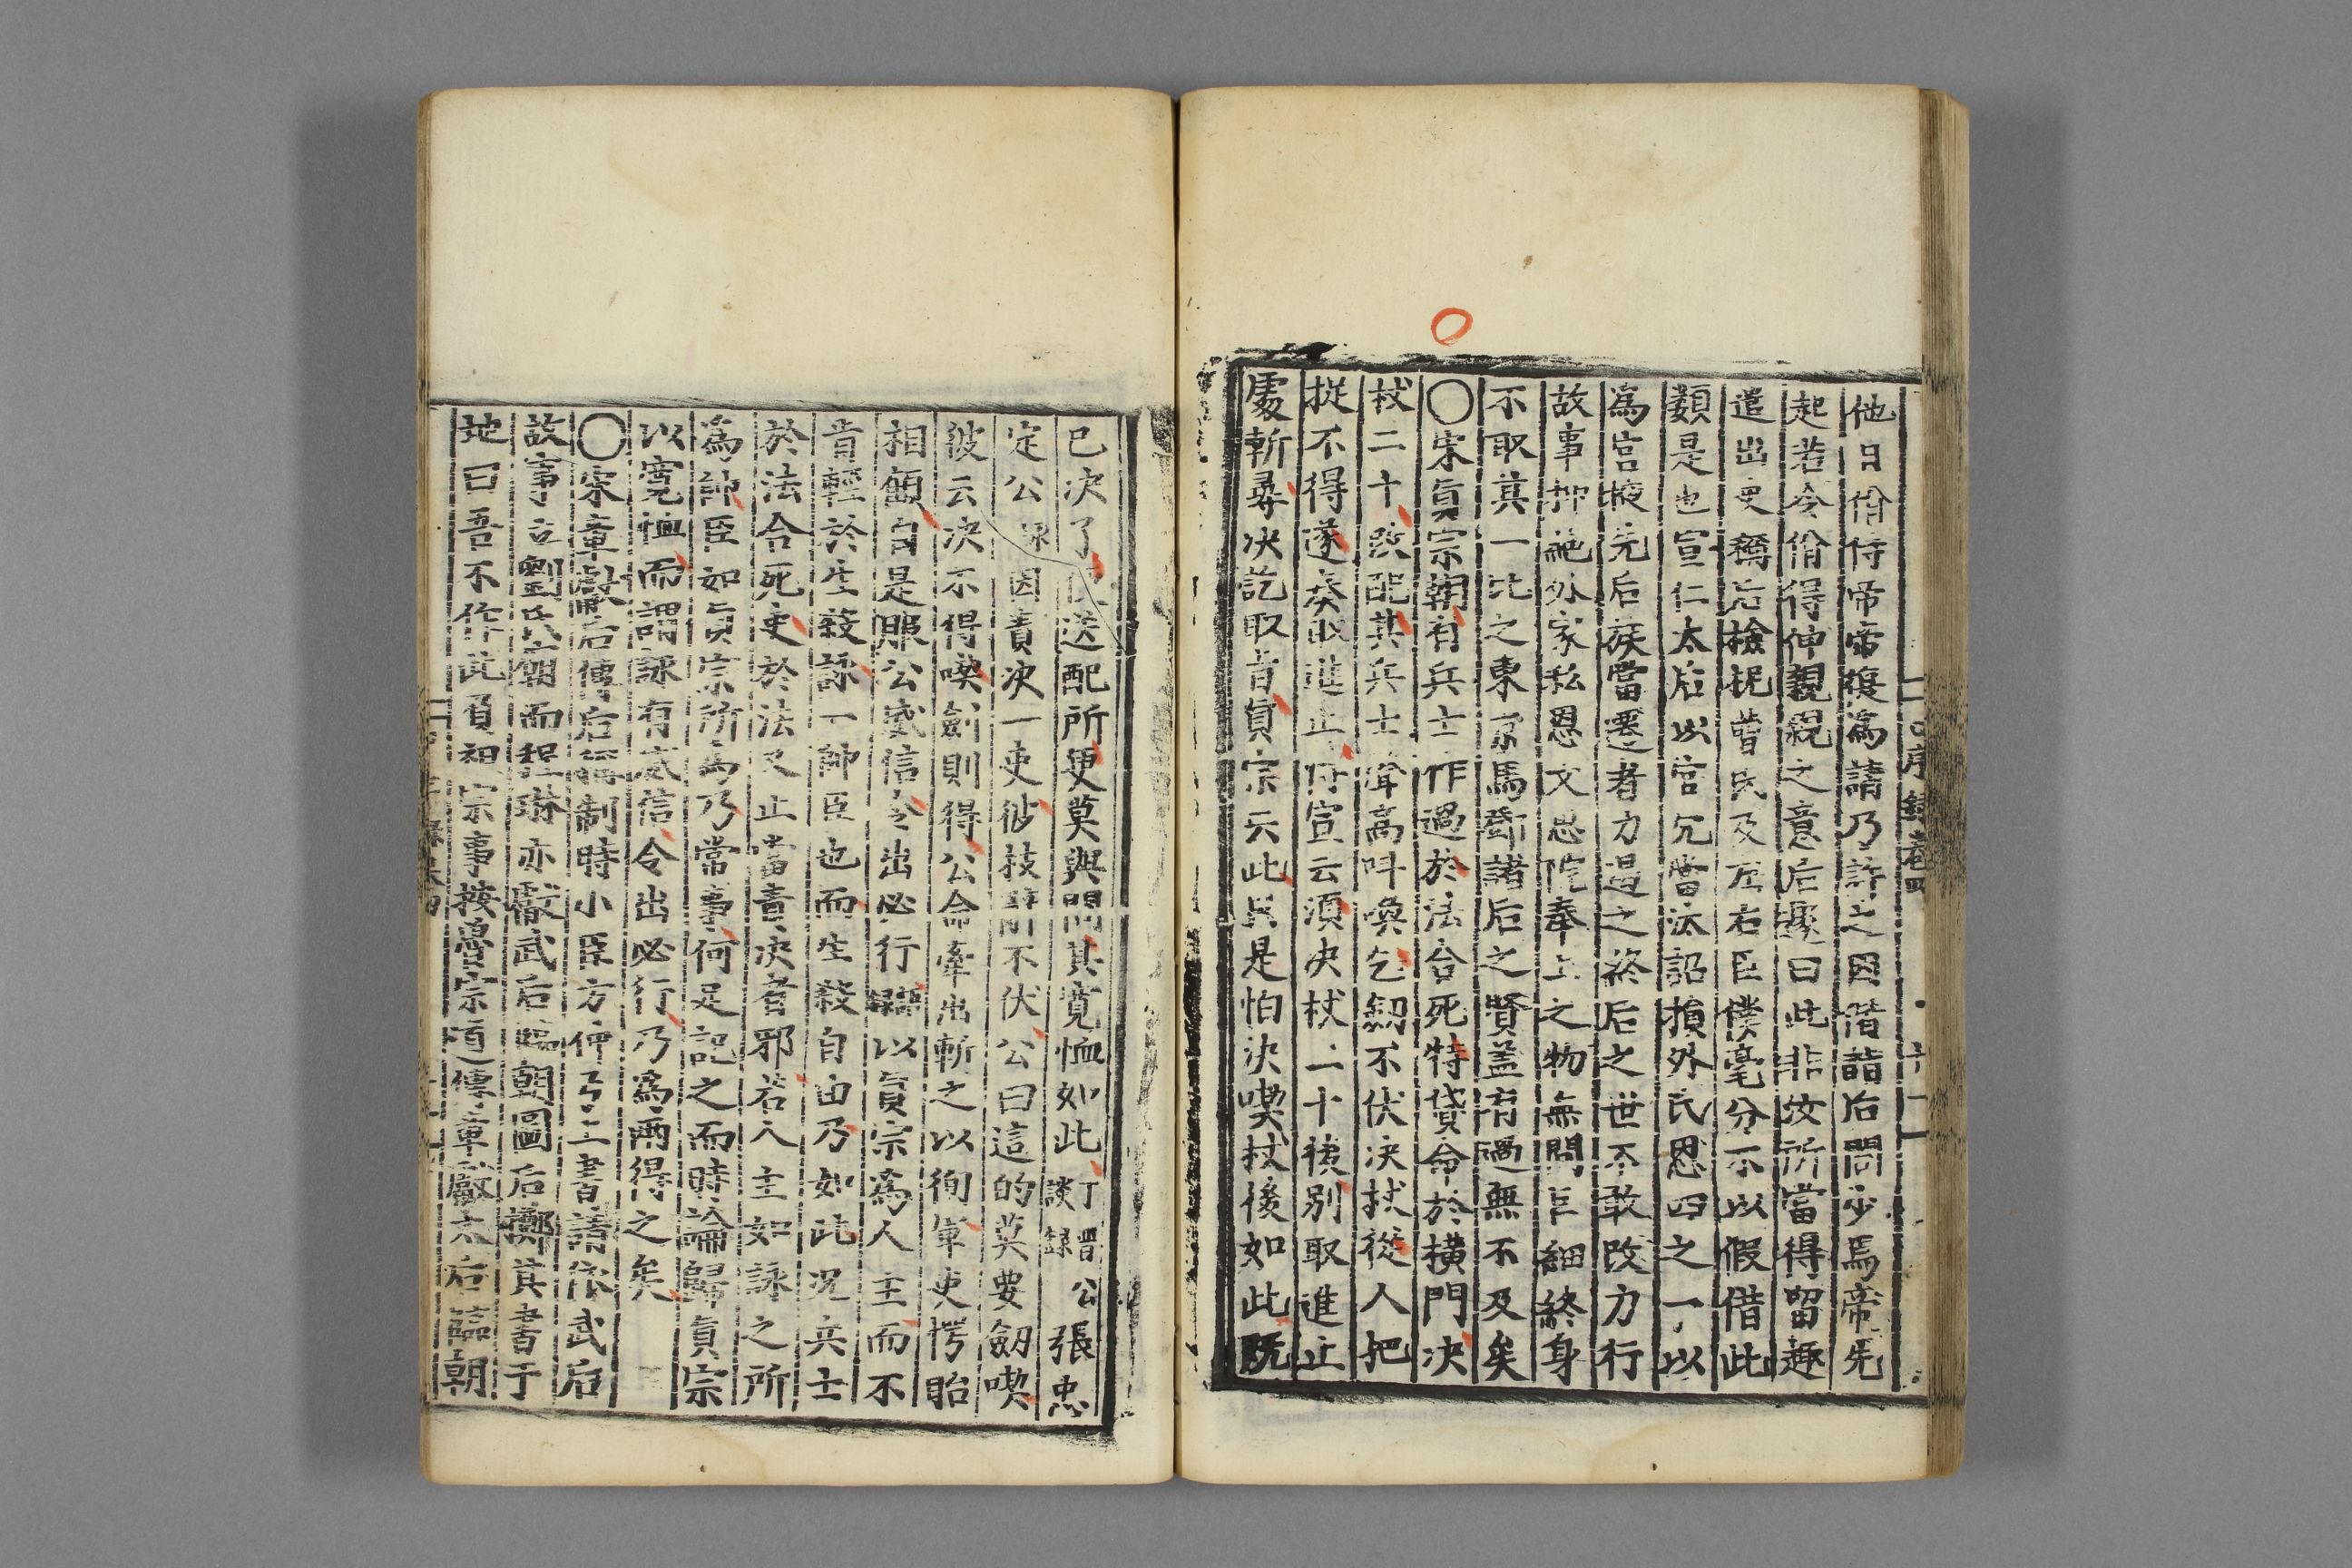 他日佾侍帝帝復爲請乃許之因偕詣后閤少焉帝先
起若令佾得伸親親之意后遽曰此非汝所當得留趣
遣出更稱后檢柅曹氏及左右臣僕毫分不以假借此
類是也宣仁太后以官冗當汰詔損外氏恩四之一以
爲宮掖先后族當遷者力遏之終后之世不敢改力行
故事抑絶外家私恩文思院奉上之物無問巨細終身
不取其一比之東京馬鄧諸后之賢盖有過無不及矣
〇宋眞宗朝有兵士作過於法合死特貸命於橫門决
杖二十改配其兵士聲高呌喚乞劒不伏决杖從人把
捉不得遂奏取進止傳宣云須决杖二十後别取進止
處斬尋决訖取旨眞宗云此只是怕决喫杖後如此旣
已决了便送配所更莫與問其寛恤如此丁晋公談錄張忠
定公詠因責决一吏彼枝辭不伏公曰這的莫要劒喫
彼云决不得喫劒則得公命牽出斬之以徇軍吏愕眙
相顧自是服公威信令出必行 以眞宗爲人主而不
肯輕於生殺詠一帥臣也而生殺自由乃如此况兵士
於法合死吏於法又止當責决者邪若人主如詠之所
爲帥臣如眞宗所爲乃當事何足記之而時論歸眞宗
以寛恤而謂詠有威信令出必行乃爲兩得之矣
〇宋章獻后傳后稱制時小臣方仲弓上書請依武后
故事立劉氏廟而程琳亦獻武后臨朝圖后擲其書于
地曰吾不作此負祖宗事按魯宗道傳章獻太后臨朝